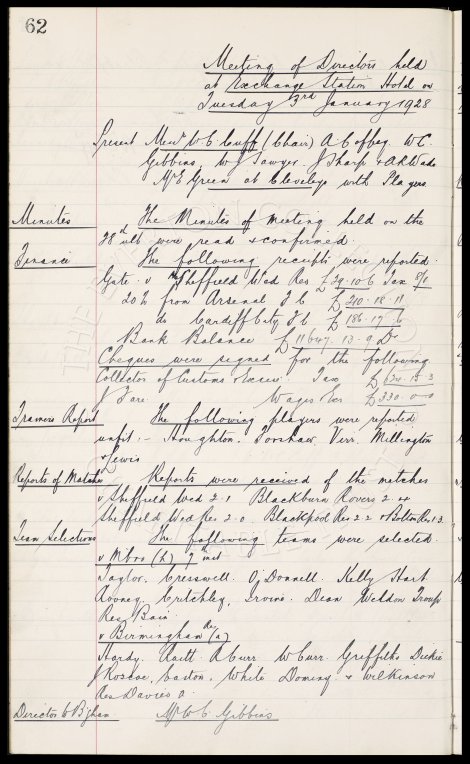 62
Meeting of Directors held
at Exchange Station Hotel on
Tuesday 3rd January 1928
Present Messrs W C Cuff (Chair) A Coffey. W.C.
Gibbins W J Sawyer. J Sharp & A R Wade
Mr E Green at Cleveleys with Players
Minutes The Minutes of meeting held on the
28th ult were read & confirmed.
Finance The following receipts were reported.
Gate. v Sheffield Wed Res £29.10.6 Tax 8/1
20% from Arsenal F C £210.18.11
do Cardiff City F C £186.17.6
Bank Balance £11647.13.9 Dr
Cheques were signed for the following
Collector of Customs & Excise. Tax £
J Fare. Wages &c £330.0.0
Trainers Report The following players were reported
unfit:- Houghton. Forshaw. Virr. Millington
& Lewis
Reports of Matches Reports were received of the matches
v Sheffield Wed 2.1 Blackburn Rovers 2.4
Sheffield Wed Res 2.0. Blackpool Res 2.2 & Bolton Res 1.3.
Team Selections The following teams were selected.
v M'bro (h) 7th inst
Taylor. Cresswell. O'Donnell. Kelly Hart
Rooney. Critchley. Irvine. Dean Weldon Troup
Res Bain
v Birmingham Res (a)
Hardy. Raitt. R Curr. W Curr. Griffiths Dickie
J Roscoe. Easton. White Dominy & Wilkinson
Res Davies a.
Director to B'gham Mr W C Gibbins